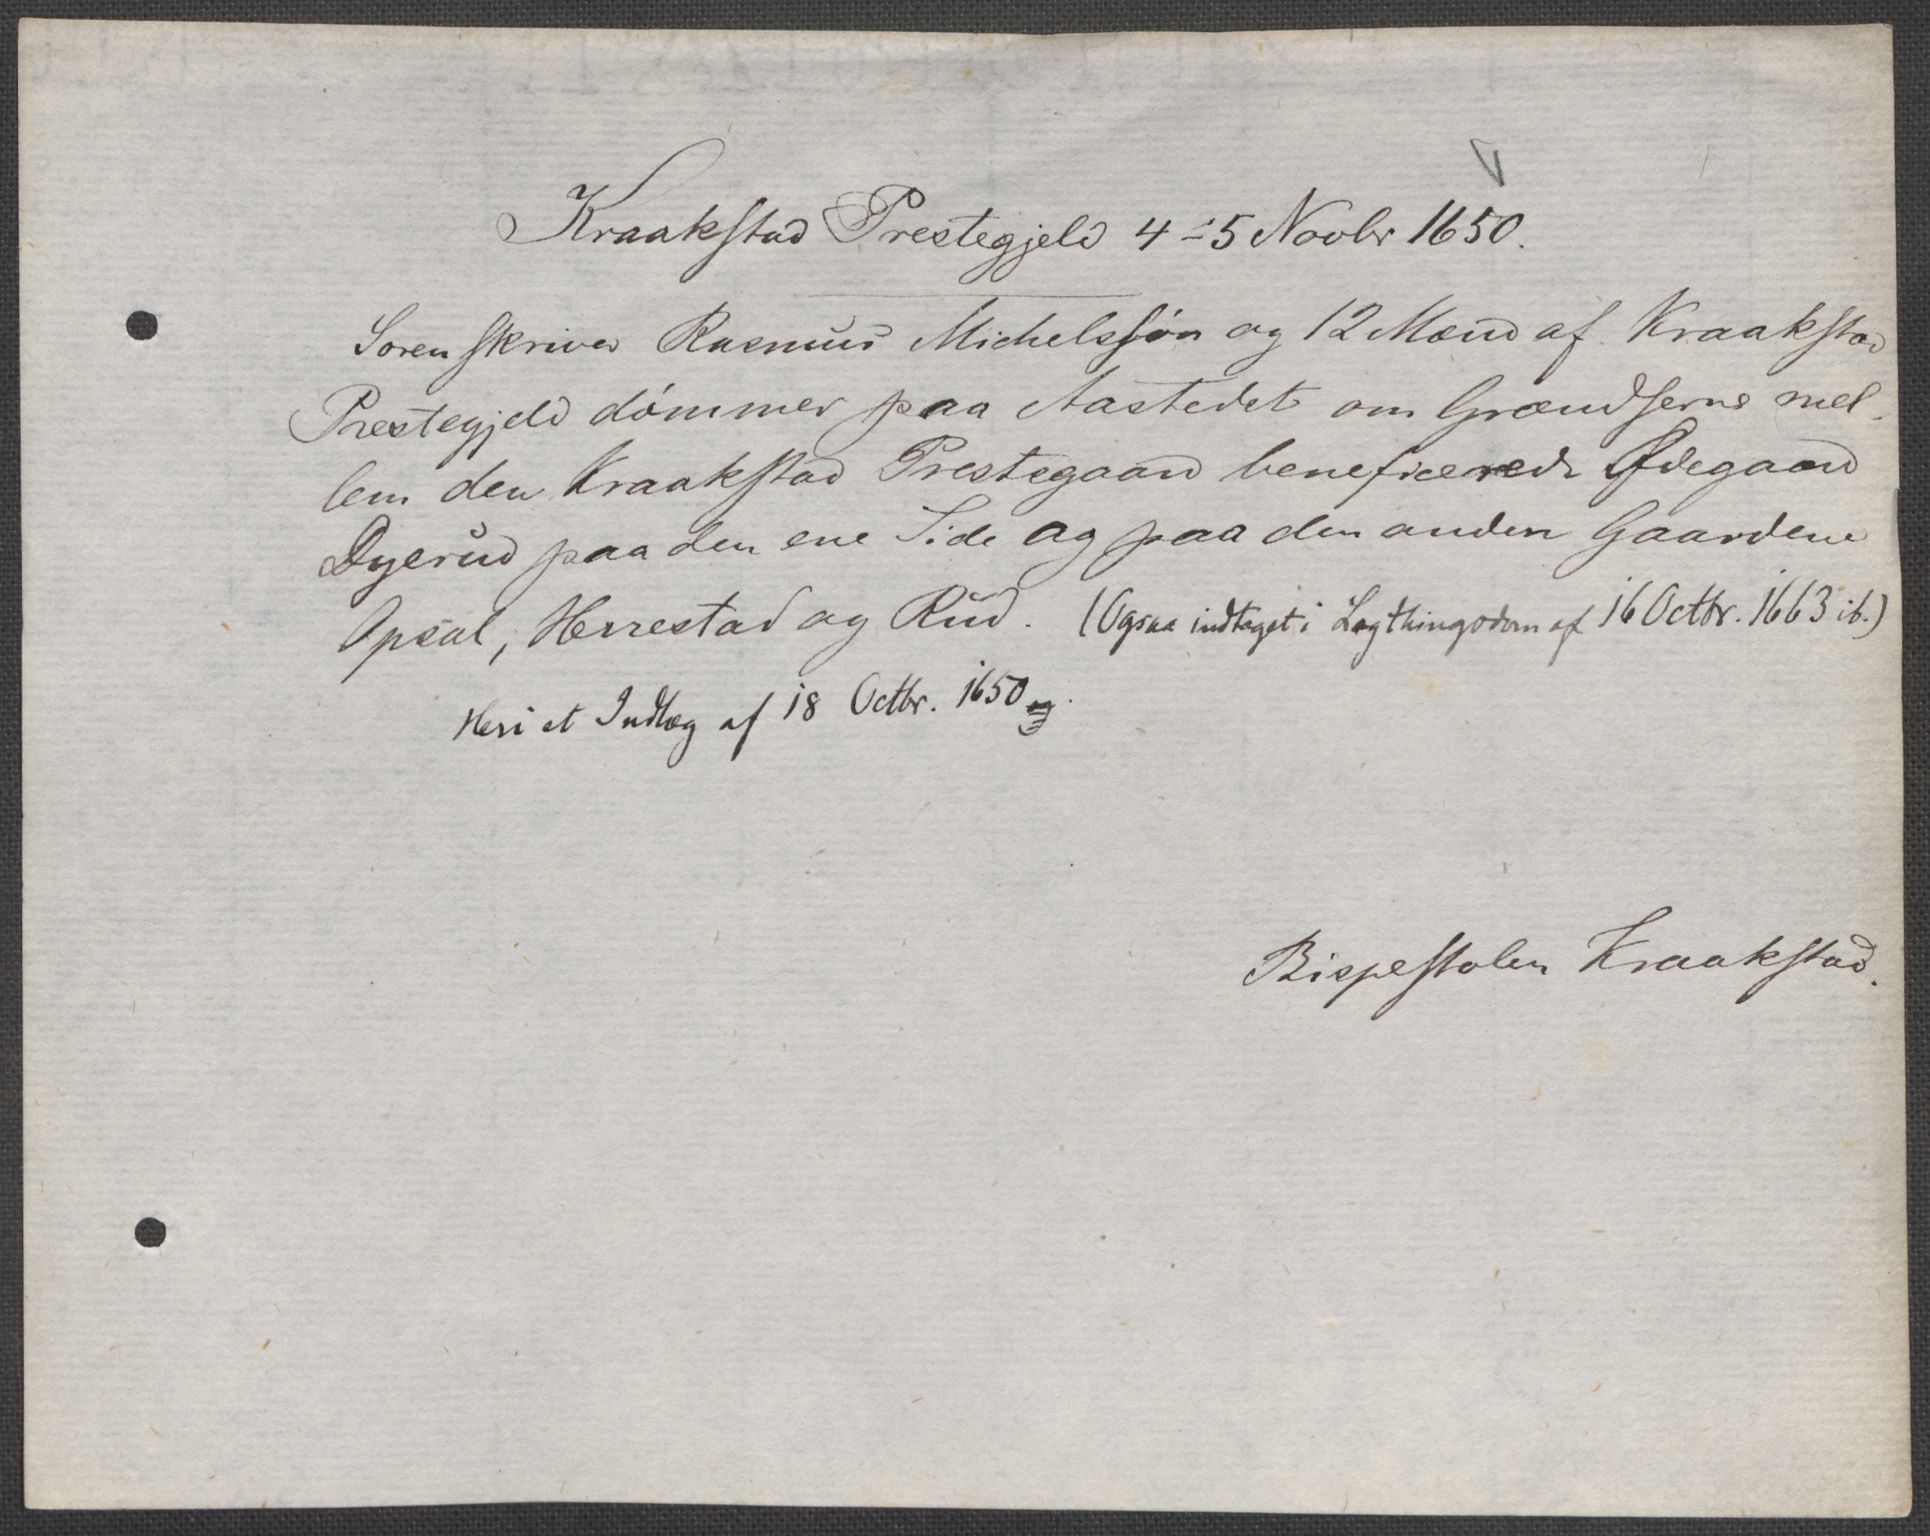 Kraakstad Prestegjeld 4-5 Novbr 1650.
Sorenskriver Rasmus Michelssøn og 12 Mænd af Kraakstad
Prestegjeld dömmer paa Aastedet om Grændserne mel-
lem den Kraakstad Prestegaard beneficerede Ødegaard
Dyerud paa den ene Side og paa den anden Gaardene
Opsal, Herrestad og Rud. (Ogsaa indtaget i Lagthingsdom af 16 Octbr. 1663 ib.)
Heri et Indlæg af 18 Octbr. 1650
Bispestolen Kraakstad.